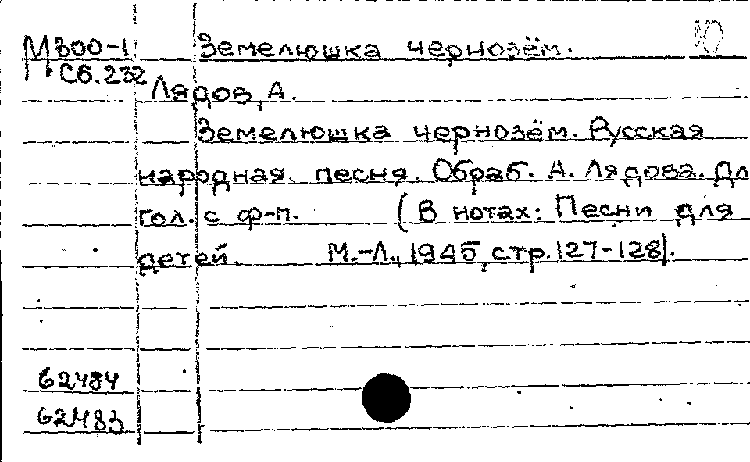 М300-1 Земелюшка чернозём. Ю
Сб.232
Лядов, А.
Земелюшка чернозём. Русская
народная песня. Обраб. А. Лядова. Дл
гол. с ф-п. (В нотах: Песни для
детей. М.-Л., 1945, стр. 127-128).
62484
62483